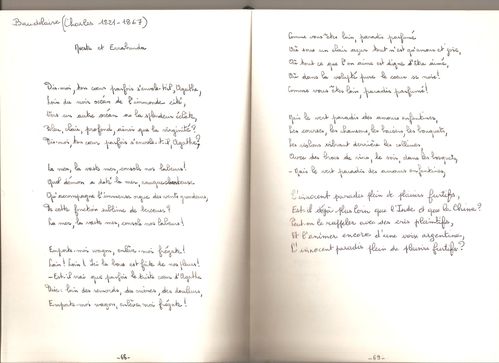 Baudelaire (Charles 1821-1867)
Moesta et Errabunda
Dis-moi, ton cœur parfois s'envole-t-il, Agathe,
Loin du noir océan de l'immonde cité,
Vers un autre océan où la splendeur éclate,
Bleu, clair, profond, ainsi que la virginité?
Dis-moi, ton cœur parfois s'envole-t-il, Agathe?
La mer, la vaste mer, console nos labeurs!
Quel démon a doté la mer, rauque chanteuse
Qu'accompagne l'immense orgue des vents grondeurs,
De cette fonction sublime de berceuse?
La mer, la vaste mer, console nos labeurs!
Emporte-moi wagon, enlève-moi frégate!
Loin! Loin! Ici la boue est faite de nos pleurs!
- Est-il vrai que parfois le triste cœur d'Agathe
Dise: loin des remords, des crimes, des douleurs,
Emporte-moi wagon, enlève-moi frégate!
- 68 -
Comme vous êtes loin, paradis parfumé
Où sous un clair azur tout n'est qu'amour et joie,
Où tout ce que l'on aime est digne d'être aimé,
Où dans la volupté pure le cœur se noie!
Comme vous êtes loin, paradis parfumé!
Mais le vert paradis des amours enfantines,
Les courses, les chansons, les baisers, les bouquets,
Les violons vibrant derrière les collines
Avec des brocs de vin, le soir, dans les bosquets,
- Mais le vert paradis des amours enfantines,
L'innocent paradis plein de plaisirs furtifs,
Est-il déjà plus loin que l'Inde et que la Chine?
Peut-on le rappeler avec des cris plaintifs,
Et l'animer encore d'une voix argentine,
L'innocent paradis plein de plaisirs furtifs?
- 69 -